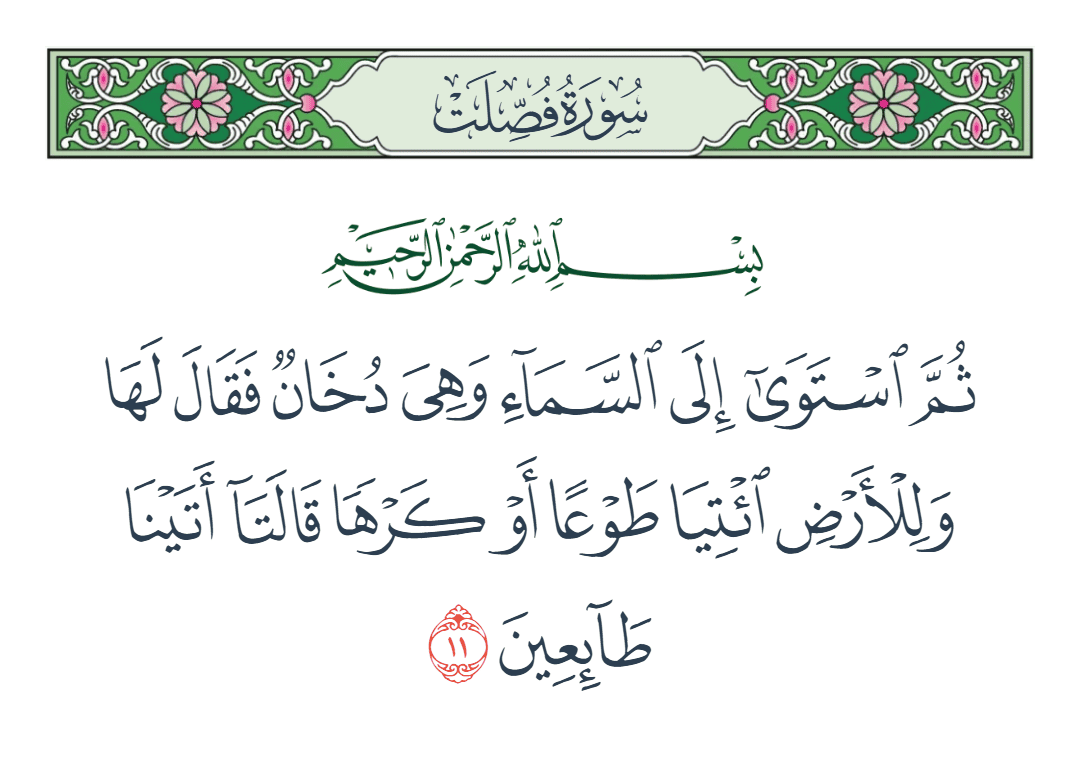 سُورَةُ فُصِّلَتْ
بِسْمِ ٱللَّهِ ٱلرَّحْمَٰنِ ٱلرَّحِيمِ
ثُمَّ ٱسْتَوَىٰٓ إِلَى ٱلسَّمَآءِ وَهِىَ دُخَانٌ فَقَالَ لَهَا
وَلِلْأَرْضِ ٱئْتِيَا طَوْعًا أَوْ كَرْهَا قَالَتَآ أَتَيْنَا
طَآئِعِينَ ١١